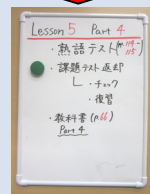 Lesson 5 Part 4
・熟語テスト(p.114~115)
・課題テスト返却
・チェック
・復習
・教科書(p.66)
Part 4